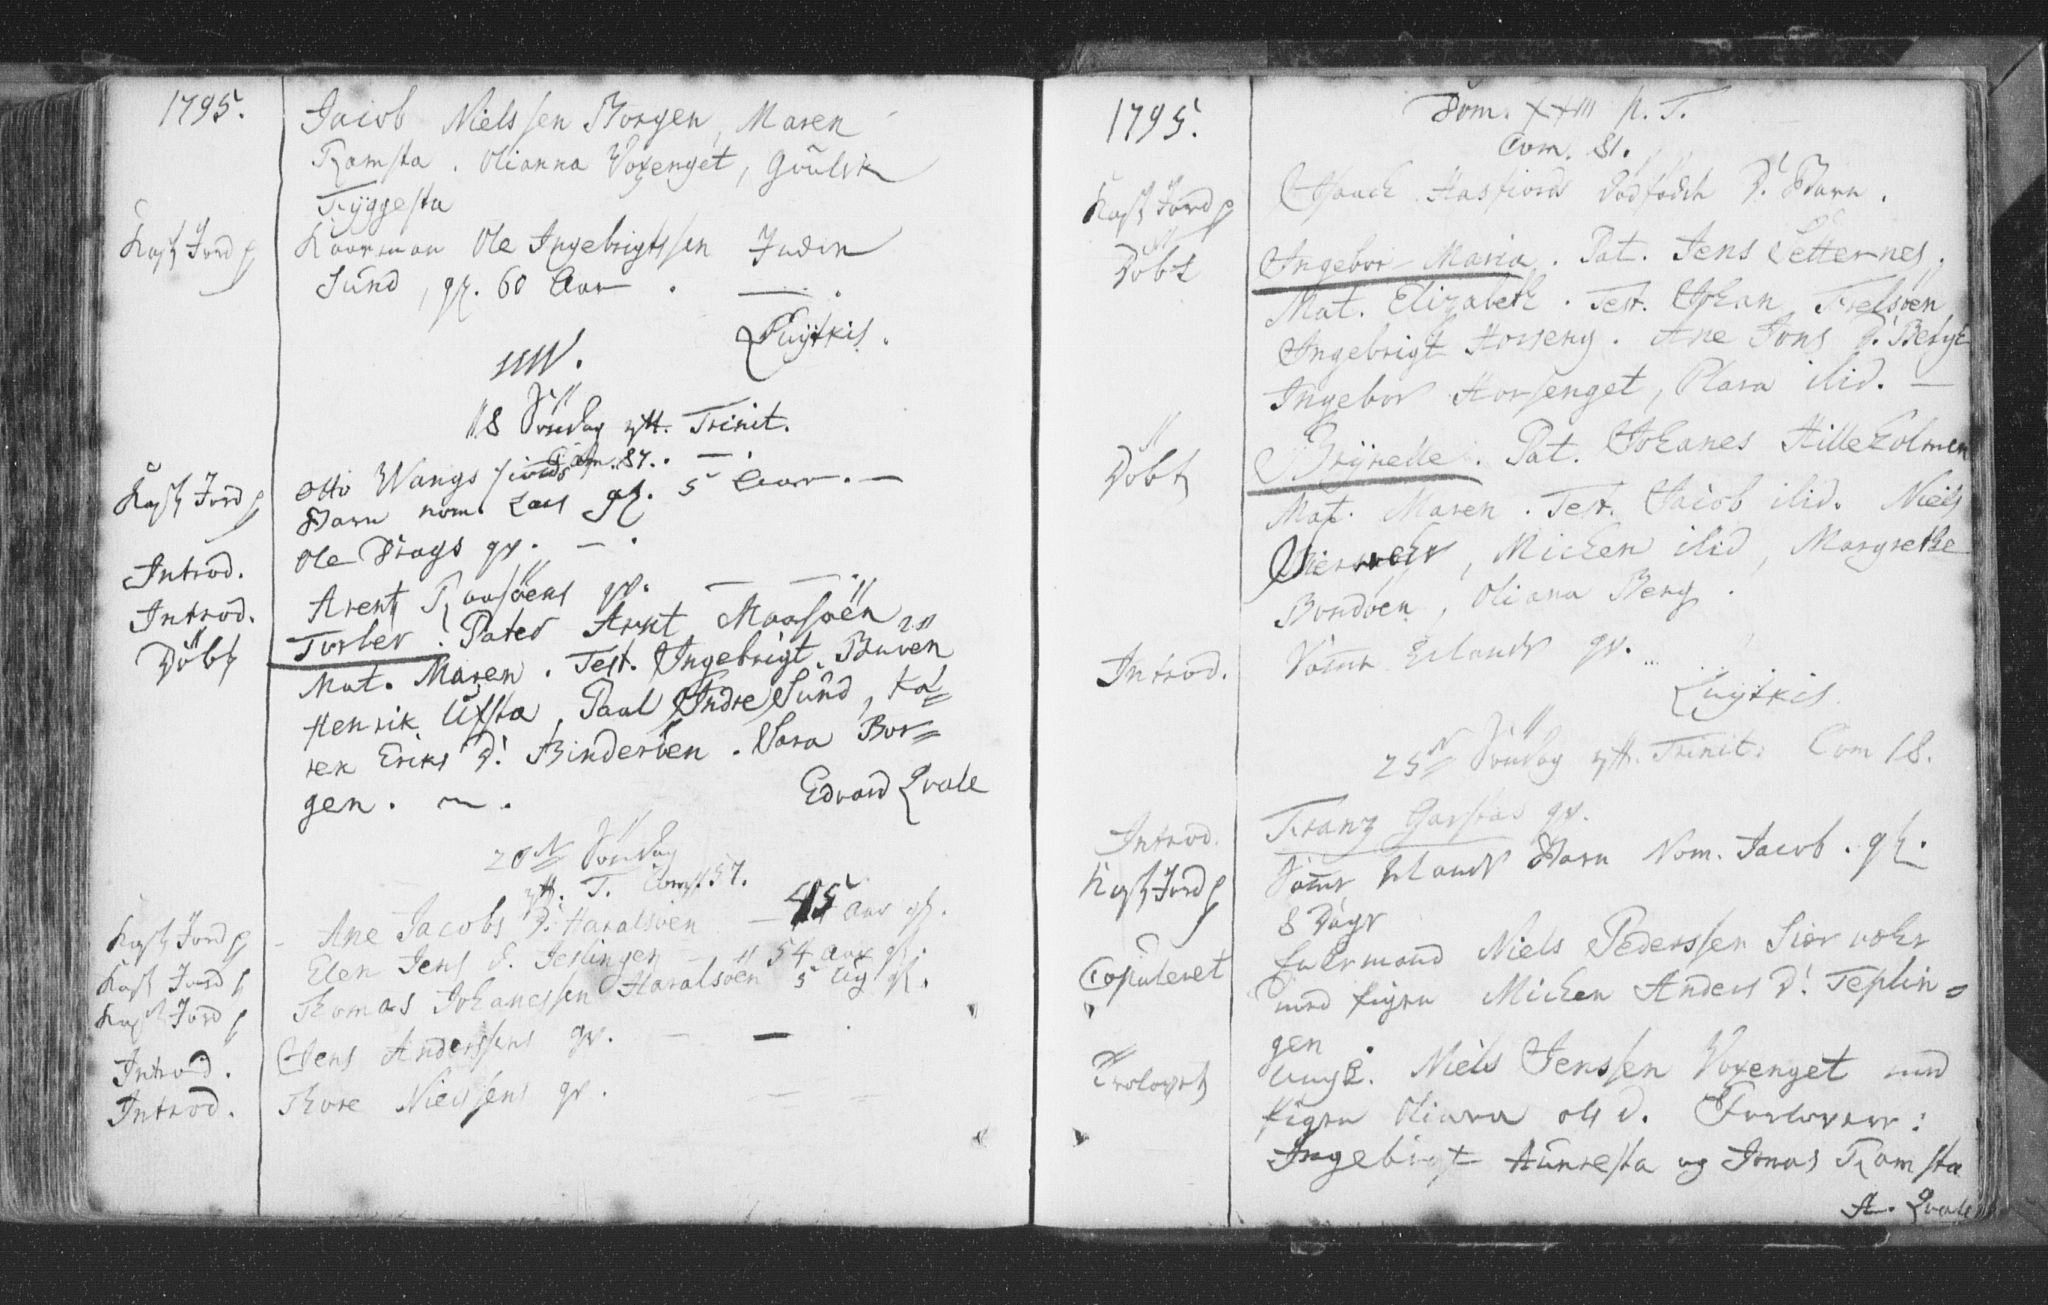 1795.
Jacob Nielssen Borgen, Maren
Ramsta. Olianna Voxenget, Gûulik
Tyggesta
Kast Jord p Kaarman Ole Ingebrigtssen Inder
Sund, gl. 60 Aar. —.
Luÿtkis.
18 Söndag ett. Trinit.
Com. 87. —
Kast Jord p Otto Wangsfiords
Barn nom. Lars gl. 5 Aar. —
Introd. Ole Krogs qv. — .
Introd. Arent Raasöens qv. — —.
Döbt Torber. Pater Arnt Maasöen
Mat. Maren. Test. Ingebrigt Buven
Henrik Ufsta, Paal Indre Sund, Ka=
ren Eriks D. Binderöen. Sara Bor=
gen. ~ .
Edvard Qvale
20 Söndag
ett. T. Com. 57.
Kast Jord p Ane Jacobs D. Haralsöen — 45 Aar gl.
Kast Jord p Elen Jens D. Teplingen — 54 aar gl.
Kast Jord p Thomas Johanessen Haralsöen 5 Ug gl.
Introd. Jens Anderssens qv. — — .
Introd. Thore Nielssens qv.
1795.
Dom. XXIII p. T.
Com. 81.
Kast Jord p Isaach Hasfiord dödfödt D. Barn.
Döbt Ingebor Maria. Pat. Jens Setternes.
Mat. Elizabeth. Test. Johan Trelsöen
Ingebrigt Horseng. Ane Jons D. Berge
Ingebor Horsenget, Plara ibid. —
Döbt Brÿnelle. Pat. Johanes Hilleholmen
Mat. Maren. Test. Jacob ibid. Niels
Siervoehr, Michen ibid, Margrethe
Bondöen, Oliana Berg.
Introd. Erlandt qv.
Luÿtkis.
25 Söndag ett. Trinit: Com 18.
Introd. Franz Garstas qv.
Kast Jord p Erlandt Barn Nom. Jacob. gl.
8 Dage
Copuleret Enkemand Niels Pederssen Siervoehr
med Pigen Michen Anders D. Teplin=
gen.
Trolovet Ungk. Niels Jenssen Voxenget med
Pigen Oliana Ols D. Forlovere:
Ingebrigt Aunesta og Jonas Ramsta
A. Qvale